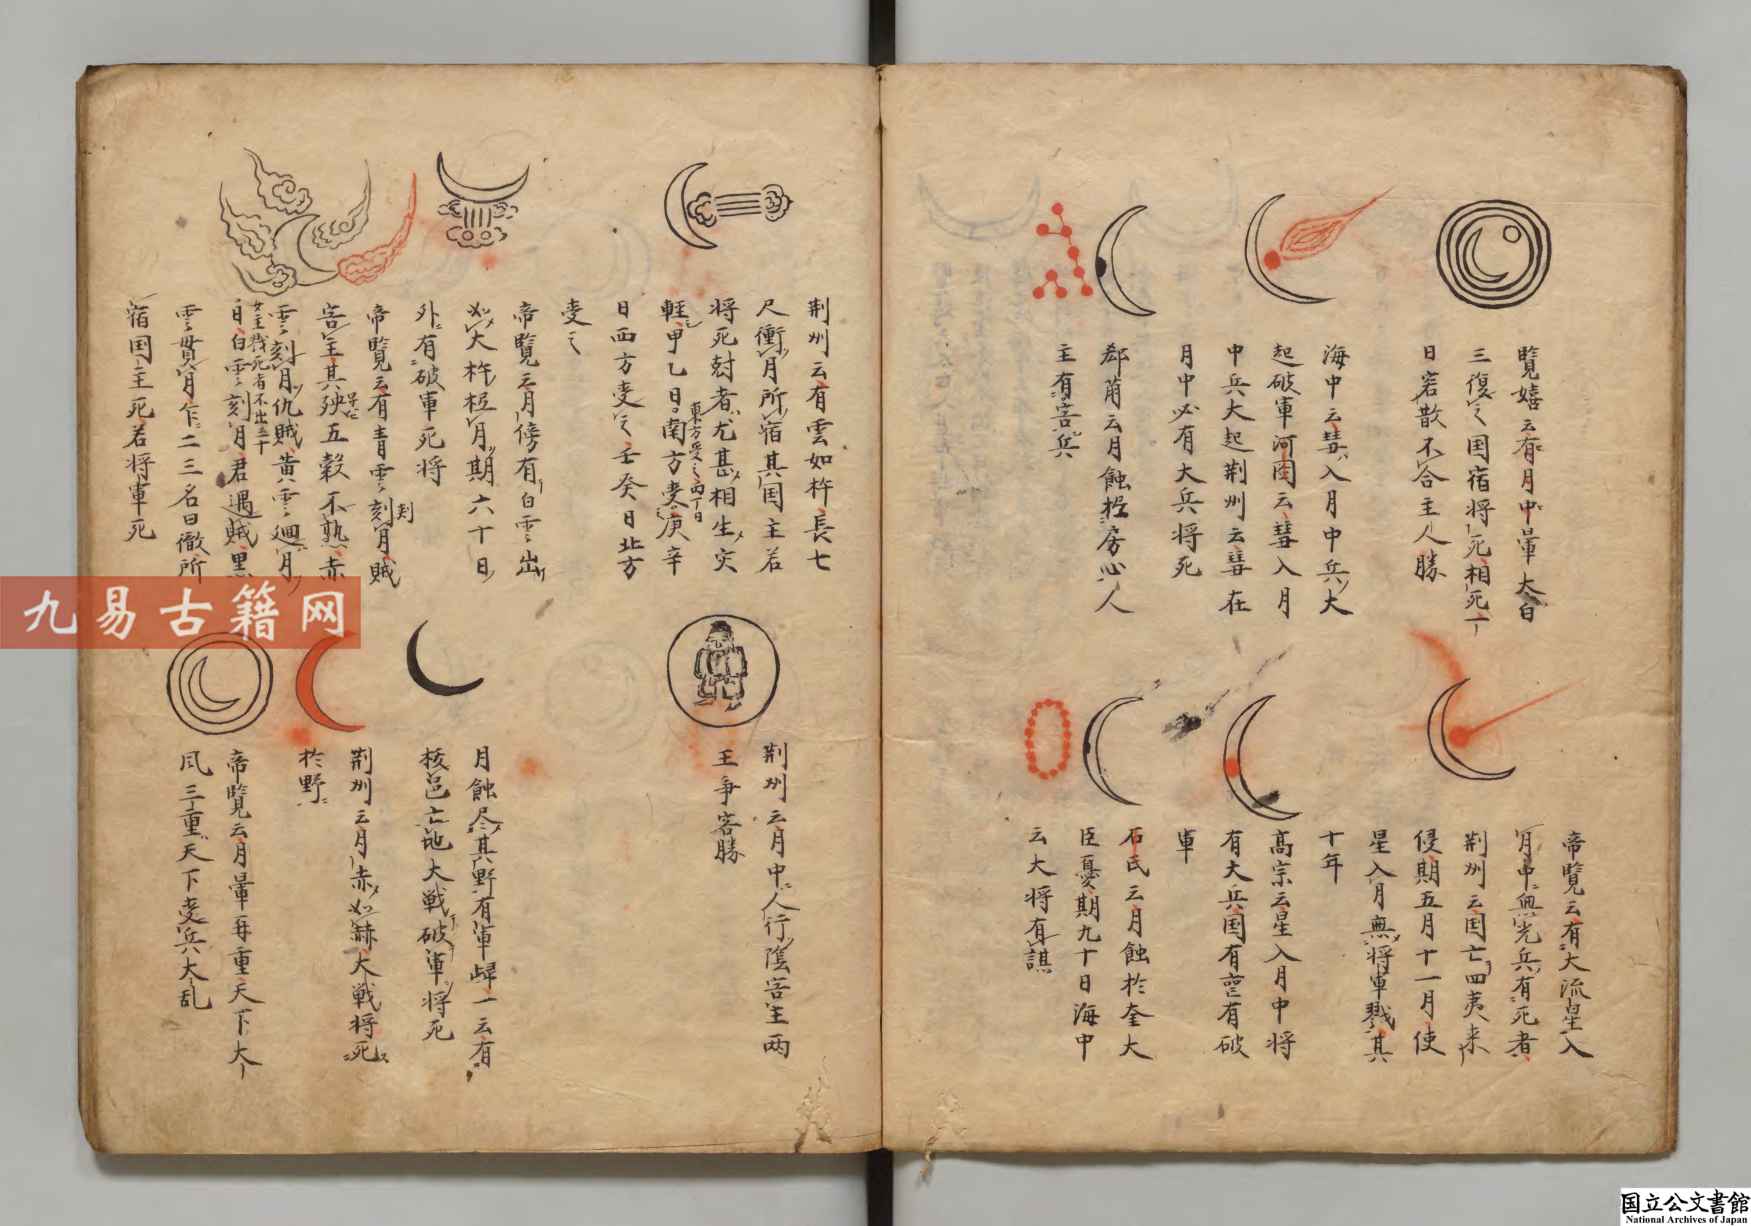 覽嬉云有月中暈太白
三復之国宿将死相死一
日宕散不合主人勝
海中云彗入月中兵大
起破軍河図云彗入月
中兵大起荆州云彗在
月中必有大兵将死
郗萌云月蝕房心人
主有害兵
帝覽云有大流星入
月中無光兵有死者
荆州云国亡四夷来
侵期五月十一月使
星入月無将軍戮其
十年
高宗云星入月中将
有大兵国有憂有破
軍
石氏云月蝕於奎大
臣憂期九十日海中
云大将有謀
荆州云有雲如杵長七
尺衝月所宿其国主若
将死尅者尤甚相生灾
軽甲乙日南方受庚辛
東方受之丙丁日
日西方受之壬癸日北方
受之
帝覽云月傍有白雲出
如大杵柱月期六十日
外有破軍死将
帝覽云有青雲刻月賊
害主其殃五穀不熟赤
雲刻月仇賊黄雲迴月
女主戮死者不出三十
日白雲刻月君遇賊黒
雲貫月乍二三名曰徹所
宿国主死若将軍死
荆州云月中人行陰害主両
王争客勝
月蝕尽其野有軍歸一云有
核邑亡地大戦破軍将死
荆州云月赤如赫大戦将死
於野
帝覽云月暈再重天下大
風三重天下受兵大乱
九易古籍网
国立公文書館
National Archives of Japan